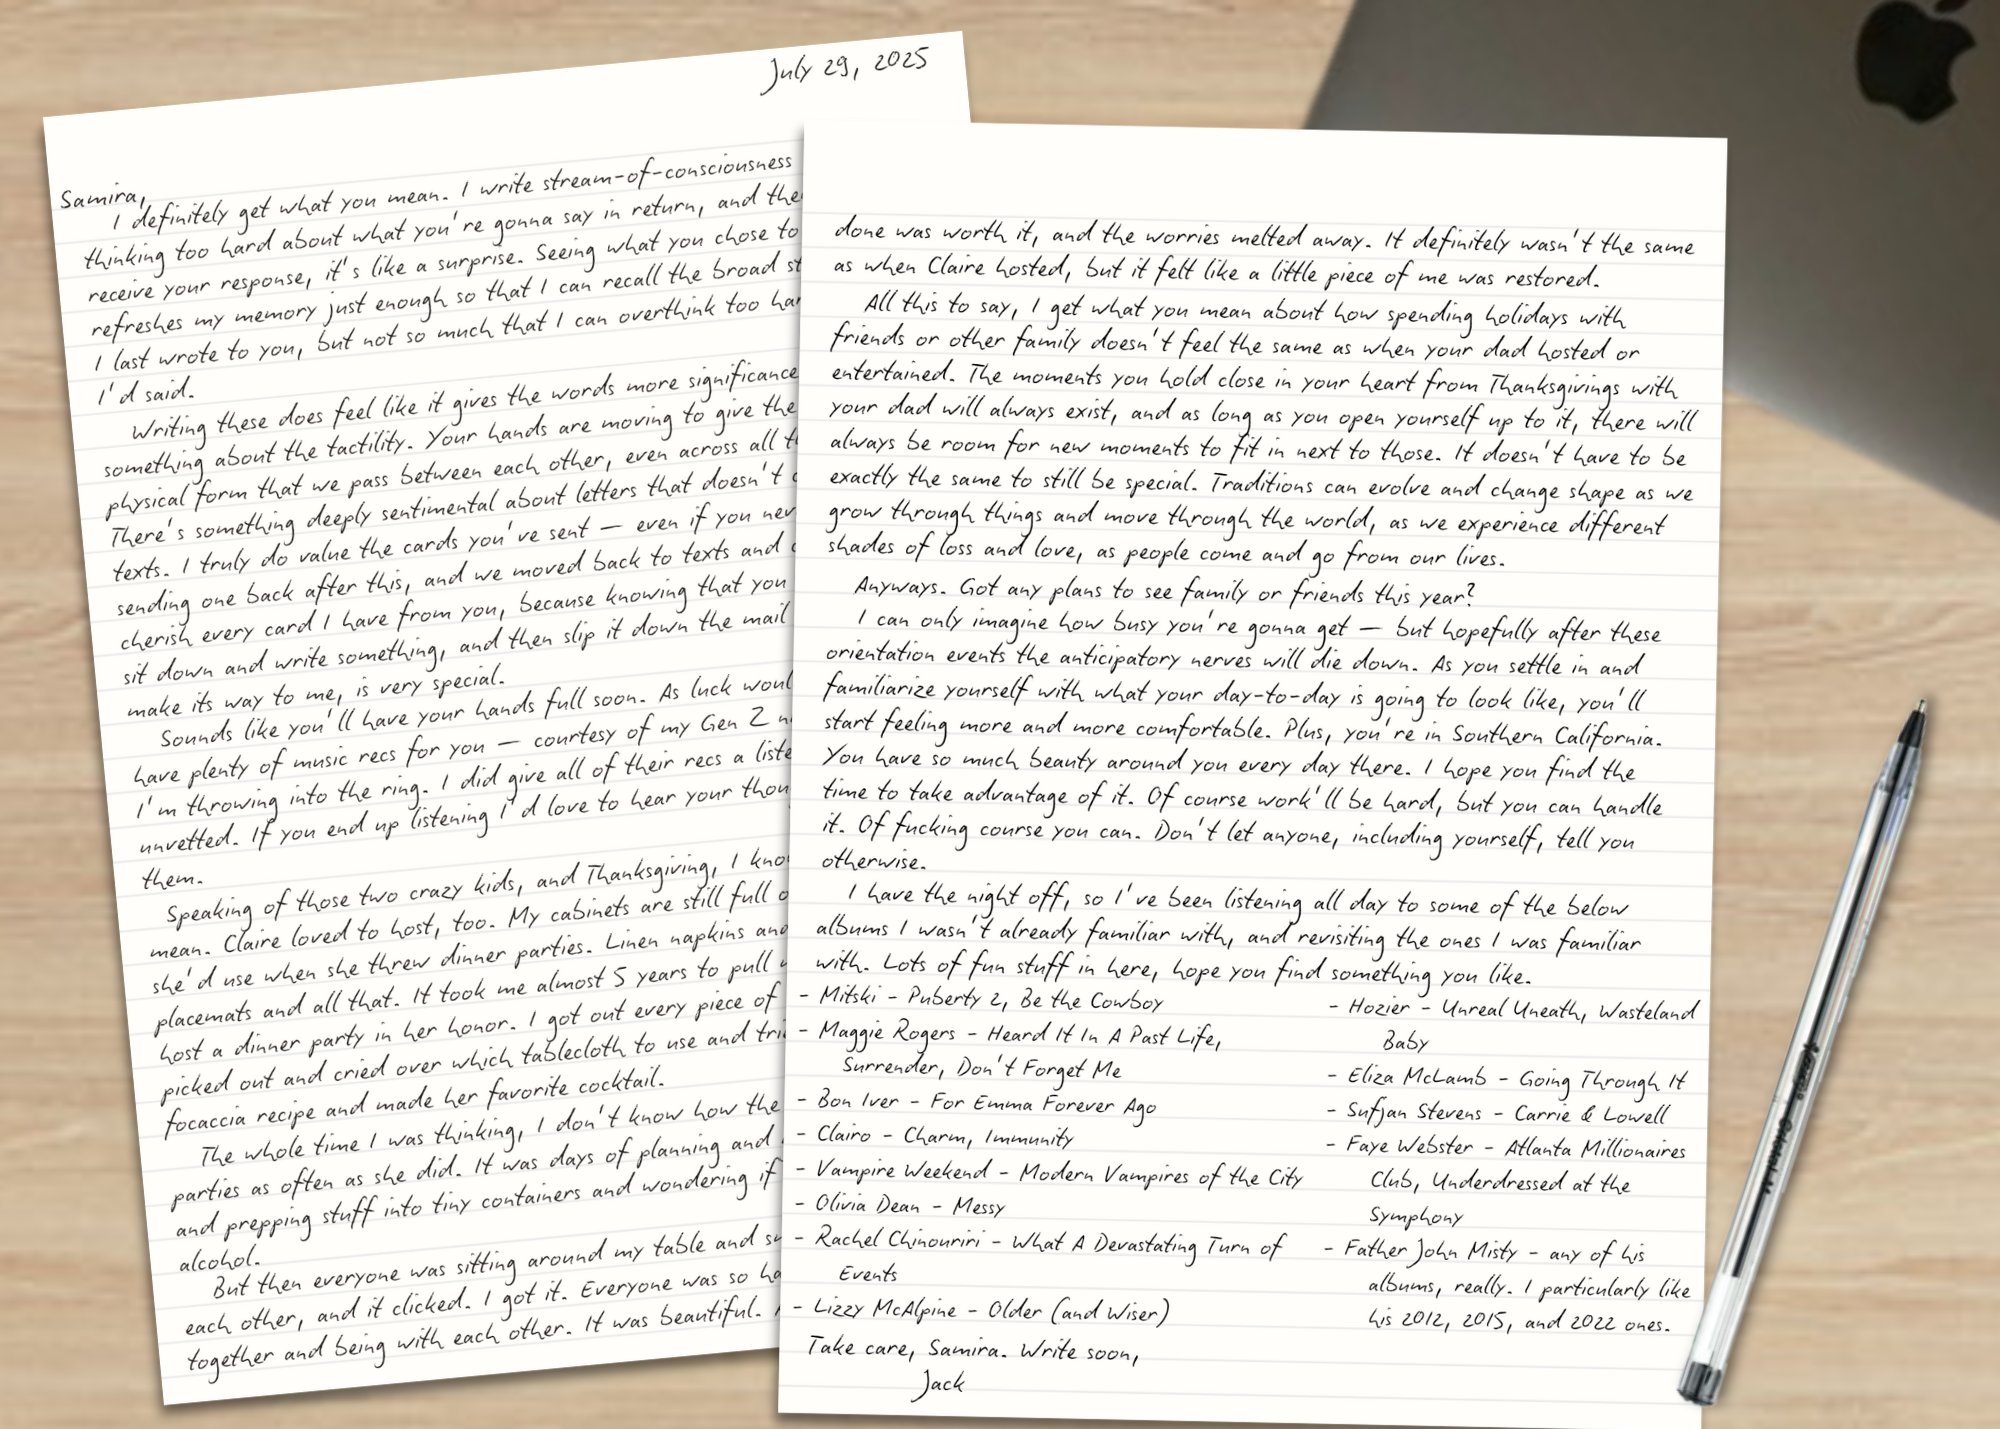 July 29, 2025
Samira,
I definitely get what you mean. I write stream-of-consciousness
thinking too hard about what you're gonna say in return, and
receive your response, it's like a surprise. Seeing what you chose to
refreshes my memory just enough so that I can recall the broad
I last wrote to you, but not so much that I can overthink too
I'd said.
Writing these does feel like it gives the words more significance
something about the tactility. Your hands are moving to give
physical form that we pass between each other, even across all
There's something deeply sentimental about letters that doesn't
texts. I truly do value the cards you've sent — even if you
sending one back after this, and we moved back to texts and
cherish every card I have from you, because knowing that you
sit down and write something, and then slip it down the mail
make its way to me, is very special.
Sounds like you'll have your hands full soon. As luck
have plenty of music recs for you — courtesy of my Gen Z
I'm throwing into the ring. I did give all of their recs a
unvetted. If you end up listening I'd love to hear your
them.
Speaking of those two crazy kids, and Thanksgiving, I
mean. Claire loved to host, too. My cabinets are still full
she'd use when she threw dinner parties. Linen napkins and
placemats and all that. It took me almost 5 years to pull
host a dinner party in her honor. I got out every piece of
picked out and cried over which tablecloth to use and
focaccia recipe and made her favorite cocktail.
The whole time I was thinking, I don't know how
parties as often as she did. It was days of planning and
and prepping stuff into tiny containers and wondering if
alcohol.
But then everyone was sitting around my table and
each other, and it clicked. I got it. Everyone was so
together and being with each other. It was beautiful.
done was worth it, and the worries melted away. It definitely wasn't the same
as when Claire hosted, but it felt like a little piece of me was restored.
All this to say, I get what you mean about how spending holidays with
friends or other family doesn't feel the same as when your dad hosted or
entertained. The moments you hold close in your heart from Thanksgivings with
your dad will always exist, and as long as you open yourself up to it, there will
always be room for new moments to fit in next to those. It doesn't have to be
exactly the same to still be special. Traditions can evolve and change shape as we
grow through things and move through the world, as we experience different
shades of loss and love, as people come and go from our lives.
Anyways. Got any plans to see family or friends this year?
I can only imagine how busy you're gonna get — but hopefully after these
orientation events the anticipatory nerves will die down. As you settle in and
familiarize yourself with what your day-to-day is going to look like, you'll
start feeling more and more comfortable. Plus, you're in Southern California.
You have so much beauty around you every day there. I hope you find the
time to take advantage of it. Of course work'll be hard, but you can handle
it. Of fucking course you can. Don't let anyone, including yourself, tell you
otherwise.
I have the night off, so I've been listening all day to some of the below
albums I wasn't already familiar with, and revisiting the ones I was familiar
with. Lots of fun stuff in here, hope you find something you like.
- Mitski - Puberty 2, Be the Cowboy
- Maggie Rogers - Heard It In A Past Life,
Surrender, Don't Forget Me
- Bon Iver - For Emma Forever Ago
- Clairo - Charm, Immunity
- Vampire Weekend - Modern Vampires of the City
- Olivia Dean - Messy
- Rachel Chinouriri - What A Devastating Turn of
Events
- Lizzy McAlpine - Older (and Wiser)
- Hozier - Unreal Uneath, Wasteland
Baby
- Eliza McLamb - Going Through It
- Sufjan Stevens - Carrie & Lowell
- Faye Webster - Atlanta Millionaires
Club, Underdressed at the
Symphony
- Father John Misty - any of his
albums, really. I particularly like
his 2012, 2015, and 2022 ones.
Take care, Samira. Write soon,
Jack